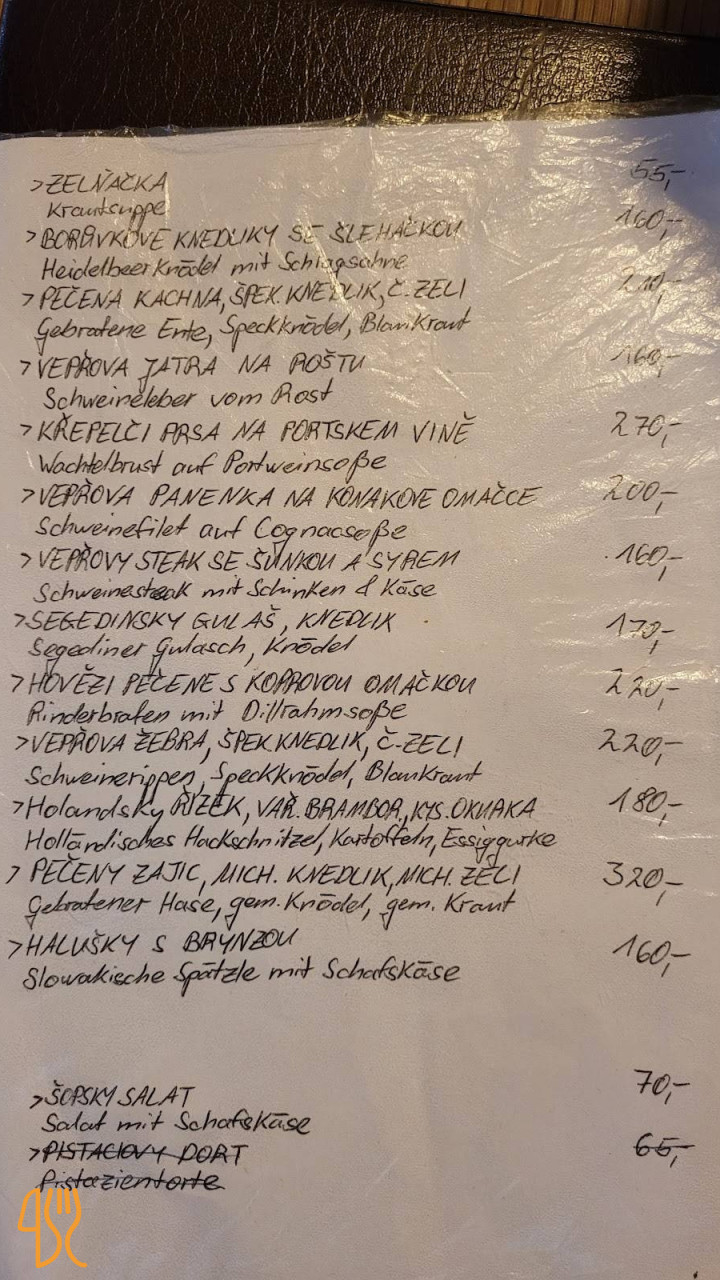 >ZELŇAČKA 55,-
Krautsuppe
>BORŮVKOVE KNEDLIKY SE ŠLEHAČKOU 160,-
Heidelbeerknödel mit Schlagsahne
>PEČENA KACHNA, ŠPEK.KNEDLIK, Č.ZELI
Gebratene Ente, Speckknödel, Blaukraut
>VEPŘOVA JATRA NA ROŠTU 160,-
Schweineleber vom Rost
>KŘEPELČI PRSA NA PORTSKEM VINĚ 270,-
Wachtelbrust auf Portweinsoße
>VEPŘOVA PANENKA NA KONAKOVE OMAČCE 200,-
Schweinefilet auf Cognacsoße
>VEPŘOVY STEAK SE ŠUNKOU A SYREM 160,-
Schweinesteak mit Schinken & Käse
>SEGEDINSKY GULAŠ, KNEDLIK 170,-
Segediner Gulasch, Knödel
>HOVĚZI PEČENE S KOPROVOU OMAČKOU 220,-
Rinderbraten mit Dillrahmsoße
>VEPŘOVA ŽEBRA, ŠPEK.KNEDLIK, Č-ZELI 220,-
Schweinerippen, Speckknödel, Blaukraut
>Holandsky ŘIZEK, VAŘ.BRAMBOR, KYS.OKURKA 180,-
Holländisches Hackschnitzel, Kartoffeln, Essiggurke
>PEČENY ZAJIC, MICH. KNEDLIK, MICH. ZELI 320,-
Gebratener Hase, gem. Knödel, gem. Kraut
>HALUŠKY S BRYNZOU 160,-
Slowakische Spätzle mit Schafskäse
>ŠOPSKY SALAT 70,-
Salat mit Schafskäse
>PISTACIOVY DORT 65,-
Pistazientorte